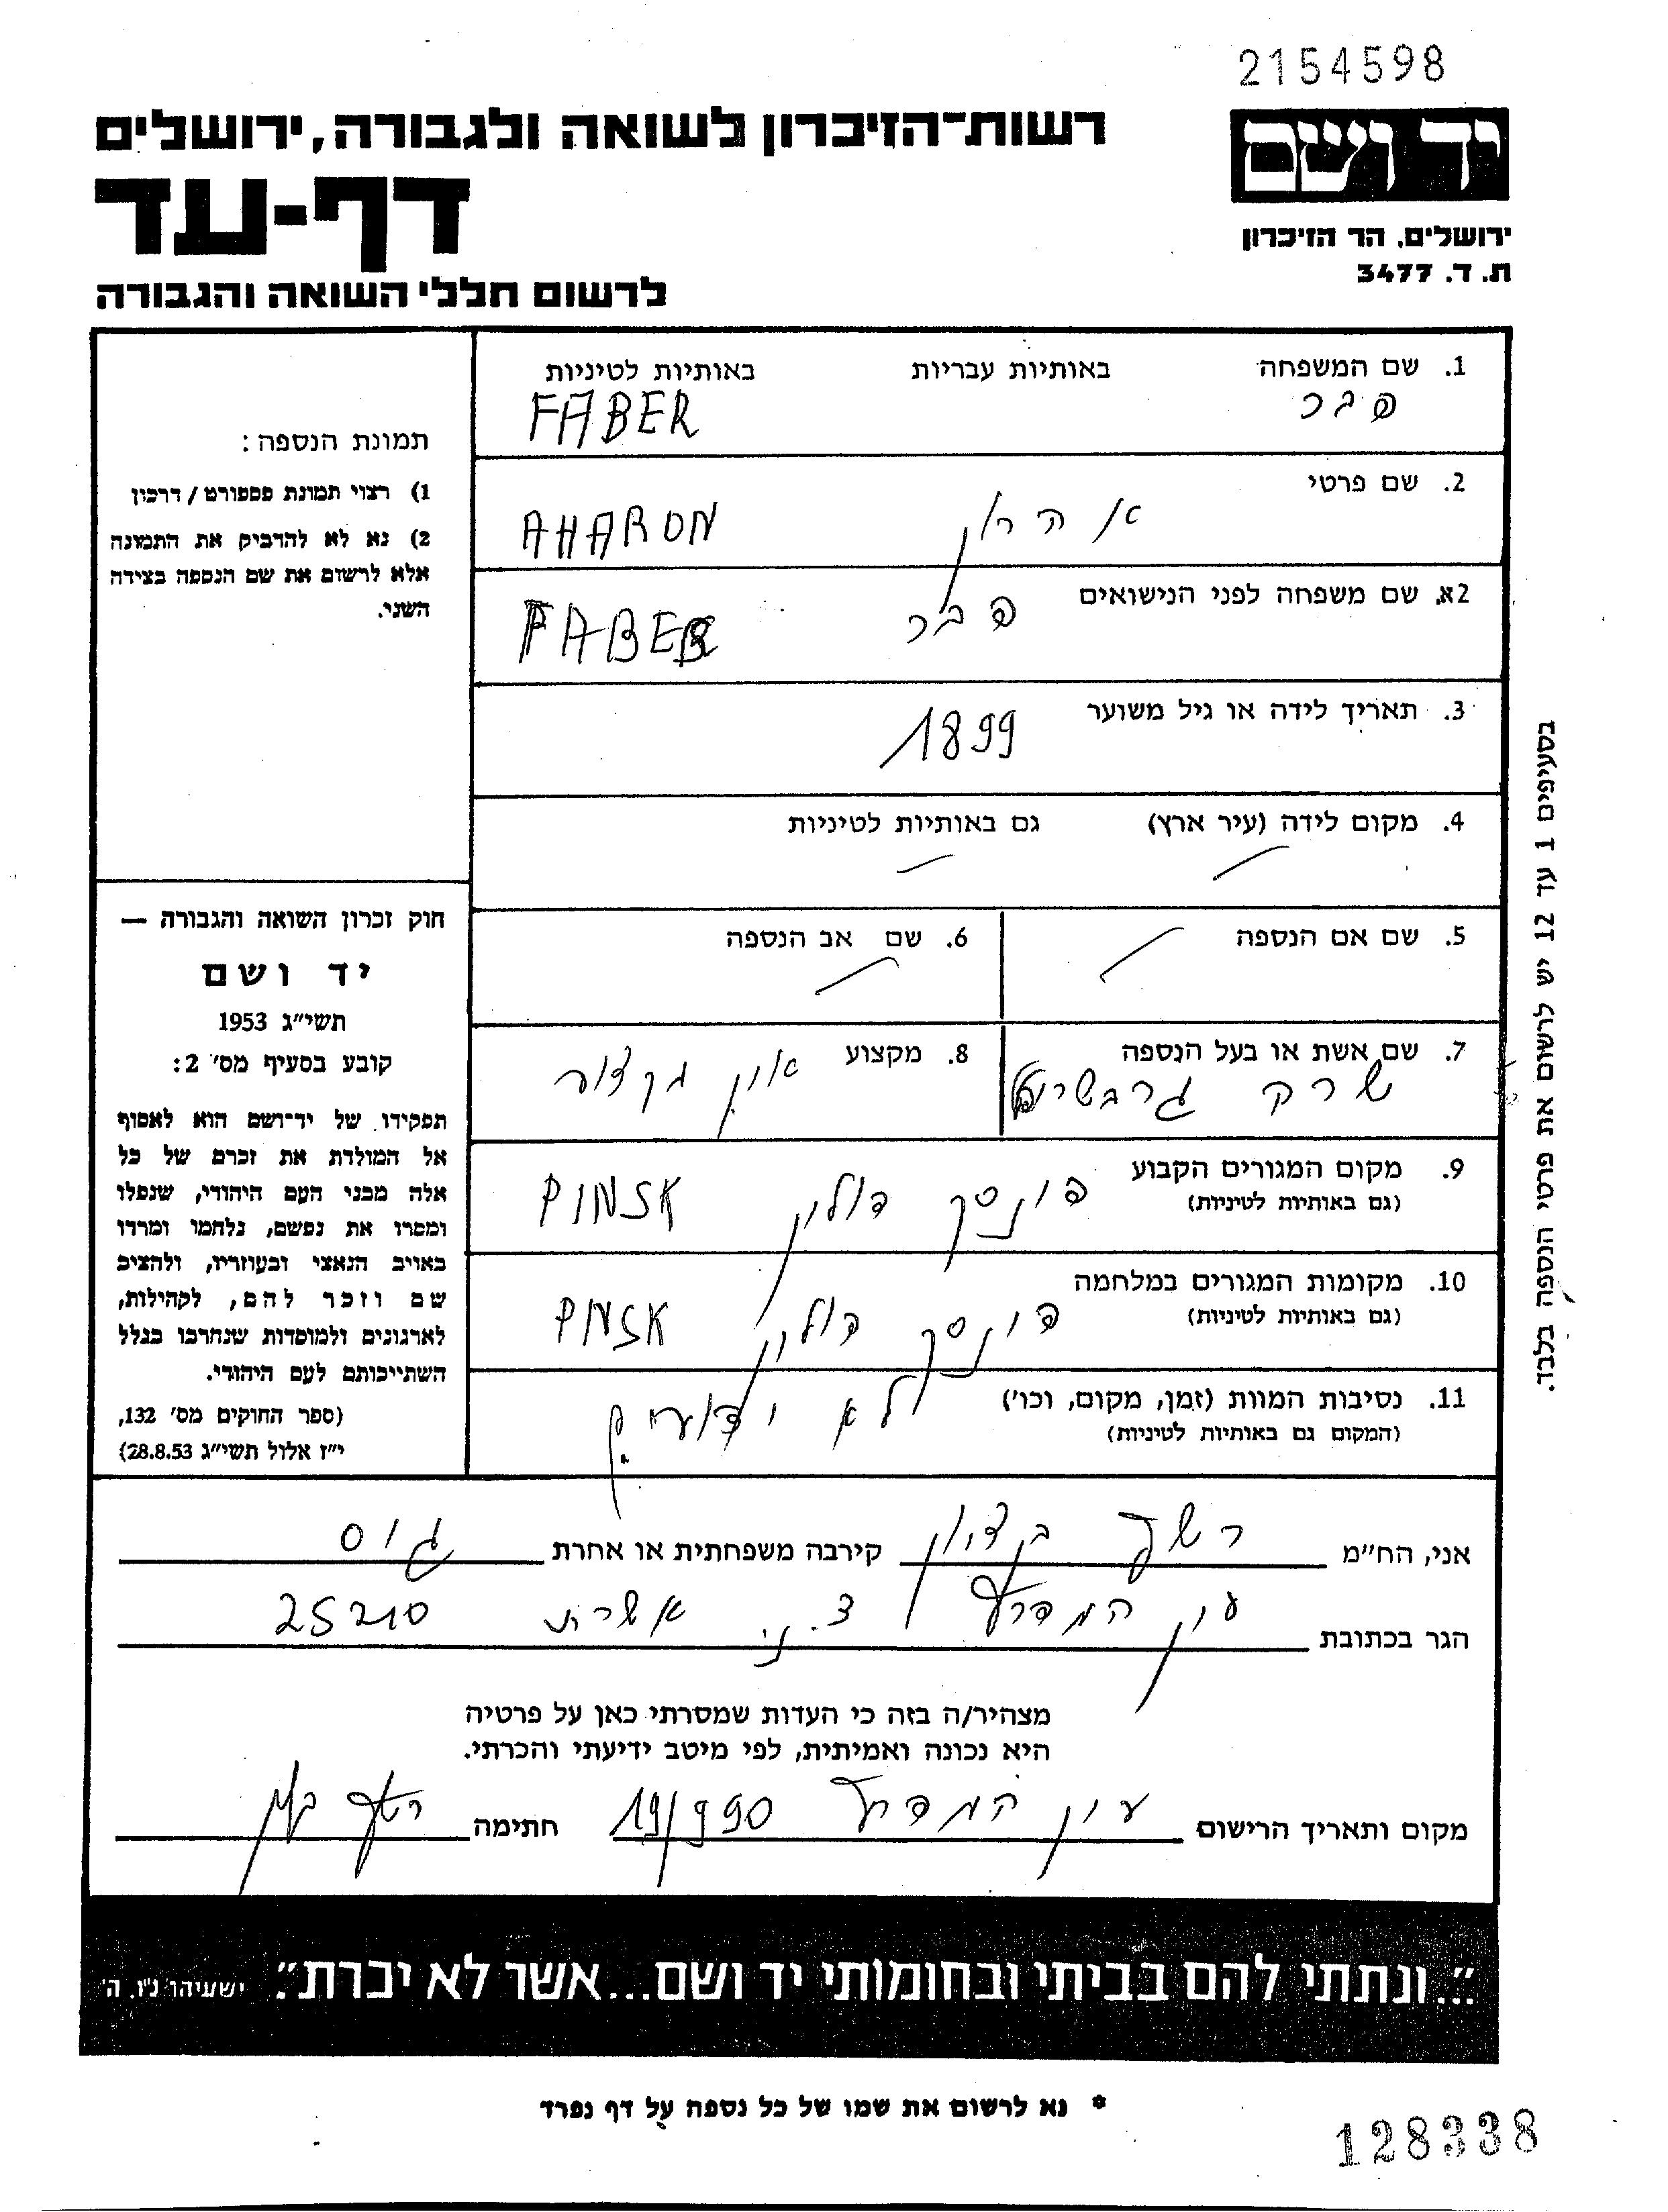 2154598
רשות-הזיכרון לשואה ולגבורה, ירושלים
יד ושם
דף-עד
ירושלים, הר הזיכרון
ת. ד. 3477
לרשום חללי השואה והגבורה
1. שם המשפחה באותיות עבריות באותיות לטיניות
פבר FABER
2. שם פרטי
אהרון AHARON
2א. שם משפחה לפני הנישואים
פבר FABER
3. תאריך לידה או גיל משוער
1899
4. מקום לידה (עיר ארץ) גם באותיות לטיניות
5. שם אם הנספה
6. שם אב הנספה
7. שם אשת או בעל הנספה
שרק
8. מקצוע
אין מקצוע
9. מקום המגורים הקבוע
(גם באותיות לטיניות)
פינסק פולין PINSK
10. מקומות המגורים במלחמה
(גם באותיות לטיניות)
פינסק פולין PNSK
11. נסיבות המוות (זמן, מקום, וכו')
(המקום גם באותיות לטיניות)
לא
תמונת הנספה:
1) רצוי תמונת פספורט / דרכון
2) נא לא להדביק את התמונה
אלא לרשום את שם הנספה בצידה
השני.
חוק זכרון השואה והגבורה —
יד ושם
תשי"ג 1953
קובע בסעיף מס' 2:
תפקידו של יד-ושם הוא לאסוף
אל המולדת את זכרם של כל
אלה מבני העם היהודי, שנפלו
ומסרו את נפשם, נלחמו ומרדו
באויב הנאצי ובעוזריו, ולהציב
שם וזכר להם, לקהילות,
לארגונים ולמוסדות שנחרבו בגלל
השתייכותם לעם היהודי.
(ספר החוקים מס' 132,
י"ז אלול תשי"ג 28.8.53)
בסעיפים 1 עד 12 יש לרשום את פרטי הנספה בלבד.
אני, הח"מ רשף בן ציון קירבה משפחתית או אחרת גיס
הגר בכתובת עין המפרץ ד.נ. אשרת 25210
מצהיר/ה בזה כי העדות שמסרתי כאן על פרטיה
היא נכונה ואמיתית, לפי מיטב ידיעתי והכרתי.
מקום ותאריך הרישום עין המפרץ 19/9 90 חתימה רשף
"...ונתתי להם בביתי ובחומותי יד ושם...אשר לא יכרת". ישעיהו נ"ו, ה'
* נא לרשום את שמו של כל נספה על דף נפרד
128338